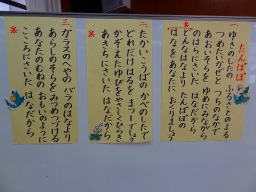 たんぽぽ
一、ゆきのしたの ふるさとのよる
つめたいかぜと つちのなかで
あおいそらを ゆめにみながら
※のはらにさいた はなだから
はなをあなたに おくりましょう
二、たかいこうばの かべのしたで
どれだけはるを まつーでしょう
かぞえたゆびを やさしくひらき
※あきちにさいた はなだから
三、ガラスのへやの バラのはなより
あらしのそらを みつめつづける
あなたのむねの おもいのように
※こころにさいた はなだから